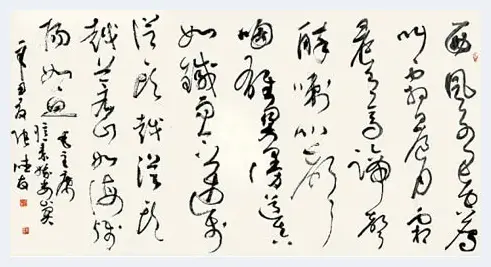 西風烈長空雁
叫霜晨月霜
晨月馬蹄聲
碎喇叭聲
咽雄關漫道真
如鐵而今邁步
從頭越從頭
越蒼山如海殘
陽如血
毛主席
憶秦娥婁山關
辛丑夏